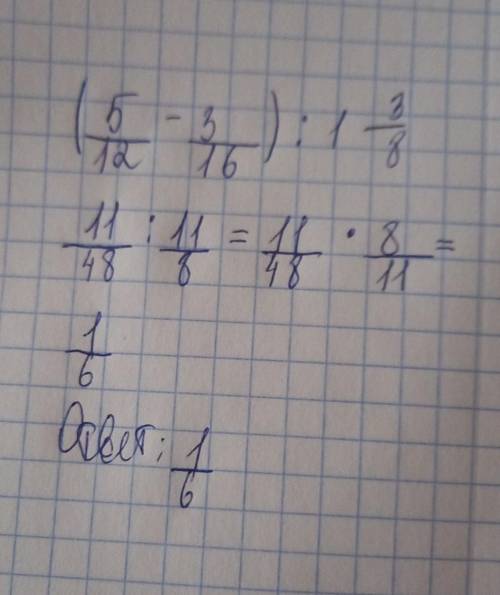 (5/12 - 3/16) : 1 3/8
11/48 : 11/8 = 11/48 · 8/11 =
1/6
Ответ: 1/6